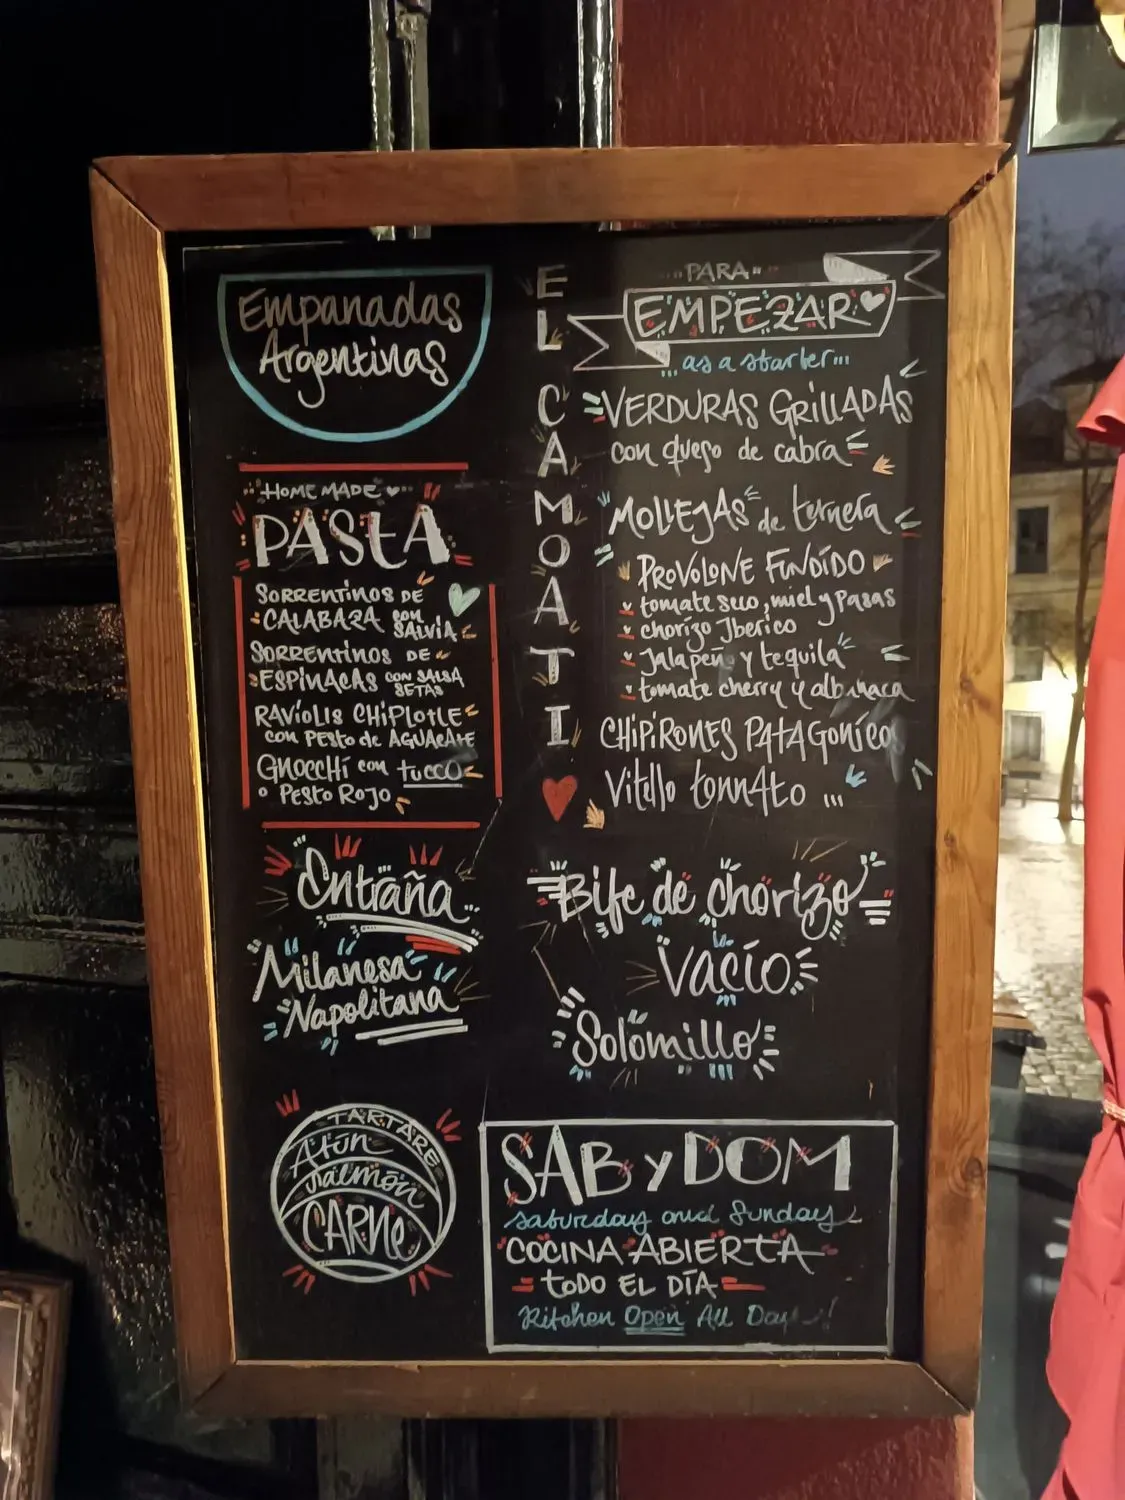 Empanadas
Argentinas
HOME MADE
PASTA
SORRENTINOS DE
CALABAZA CON
SALVIA
SORRENTINOS DE
ESPINACAS CON SALSA
SETAS
RAVIOLIS CHIPLOTLE
CON PESTO de AGUACATE
GNOCCHI con tucco
o PESTO ROJO
Entraña
Milanesa
Napolitana
TARTARE
Atún
Salmón
CARNE
EL CAMOATI
PARA
EMPEZAR
... as a starter...
VERDURAS GRILLADAS
con queso de cabra
MOLLEJAS de ternera
PROVOLONE FUNDIDO
tomate seco, miel y pasas
chorizo Iberico
Jalapeño y tequila
tomate cherry y albahaca
CHIPIRONES PATAGONICO
Vitello tonnato ...
Bife de chorizo
Vacío
Solomillo
SAB y DOM
Saturday and Sunday
COCINA ABIERTA
todo EL DÍA
Kitchen Open All Day!